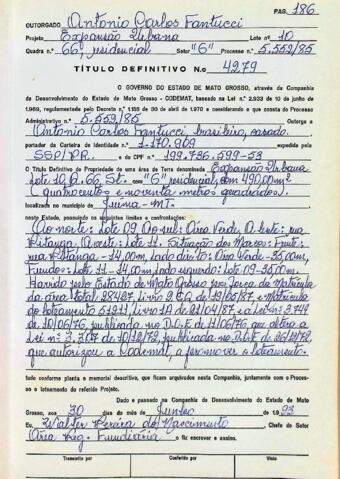 PAG. 186
OUTORGADO Antonio Carlos Fantucci
Projeto Expansão Urbana Lote n.º 10
Quadra n.º 66, residencial Setor "G" Processo n.º 5.552/85
TÍTULO DEFINITIVO N.o 4279
O GOVERNO DO ESTADO DE MATO GROSSO, através da Companhia
de Desenvolvimento do Estado de Mato Grosso - CODEMAT, baseado na Lei n.º 2.933 de 10 de junho de
1969, regulamentada pelo Decreto n.º 1.138 de 30 de abril de 1970 e considerando o que consta do Processo
Administrativo n.º 5.552/85 Outorga a
Antonio Carlos Fantucci, brasileiro, casado.
portador da Carteira de Identidade n.º 1.170.909 expedida pela
SSP/PR. e do CPF n.º 199.736.599-53
O Título Definitivo de Propriedade de uma área de Terra denominada Expansão Urbana
Lote 10, Q. 66, St. "G" residencial, com 490,00m²
(quatrocentos e noventa metros quadrados)
localizada no município de Juina-MT.
neste Estado, possuindo os seguintes limites e confrontações:
Ao norte: Lote 09, Ao sul: Área Verde, A leste: rua
Pitanga, A oeste: Lote 11. Situação dos Marcos: Frente:
rua Pitanga - 14,00m, lado direito: Área Verde - 35,00m,
Fundos: Lote 11 - 14,00m, lado esquerdo: Lote 09-35,00m.
Havido pelo Estado de Mato Grosso por força da Matrícula
da área total 28427, livro 2 CQ, de 19/05/87, e Matrícula
do loteamento 51911, Livro 1A de 21/04/87 e a Lei n.º 3.744
de 10/06/76, publicada no D.O.E de 11/06/76, que altera a
Lei n.º 3.307 de 10/12/72, publicada no D.O.E de 26/12/72,
que autorizou a Codemat, a promover o loteamento.
tudo conforme planta e memorial descritivo, que ficam arquivados nesta Companhia, juntamente com o Proces-
so e loteamento do referido Projeto.
Dado e passado na Companhia de Desenvolvimento do Estado de Mato
Grosso, aos 30 dias do mês de Junho de 1.993
Eu, Walter Pereira do Nascimento Chefe do Setor
Área Reg. Fundiária o fiz escrever e assino.
Transcrito por Conferido por Visto